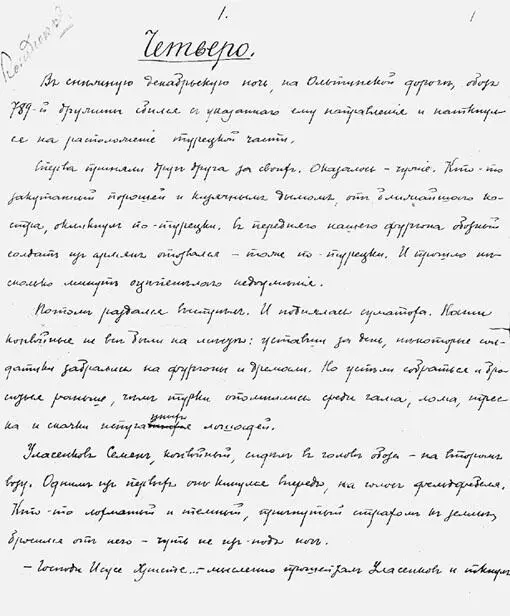 1.
1
Четверо.
Въ снѣжную декабрьскую ночь, на Ольтинской дорогѣ, обозъ
789-й дружины сбился съ указаннаго ему направленiе и наткнул-
ся на расположенiе турецкой части.
Сперва приняли другъ друга за своихъ. Оказалось – чужiе. Кто-то
закутанный порошей и кизячнымъ дымомъ, отъ ближайшаго ко-
стра, окликнулъ по-турецки. Съ передняго нашего фургона обозный
солдатъ изъ армянъ отозвался – тоже по-турецки. И прошло нѣ-
сколько минутъ оцѣпенѣлаго недоумѣнiе.
Потомъ раздался выстрѣлъ. И поднялась суматоха. Наши
конвойные не всѣ были на-чеку: уставши за день, нѣкоторые сол-
датики забрались на фургоны и дремали. Но успѣли собраться и бро-
ситься раньше, чѣмъ турки опомнились среди гама, лома, трес-
ка и скачки испуганныхъ лошадей.
Уласенковъ Семенъ, конвойный, сидѣлъ въ головѣ обоза – на второмъ
возу. Однимъ изъ первыхъ онъ кинулся впередъ, на голосъ фельдфебеля.
Кто-то лохматый и темный, пригнутый страхомъ къ землѣ,
бросился отъ него – чуть не изъ-подъ ногъ.
– Господи Исусе Христе... – мысленно прошепталъ Уласенковъ и ткнулъ